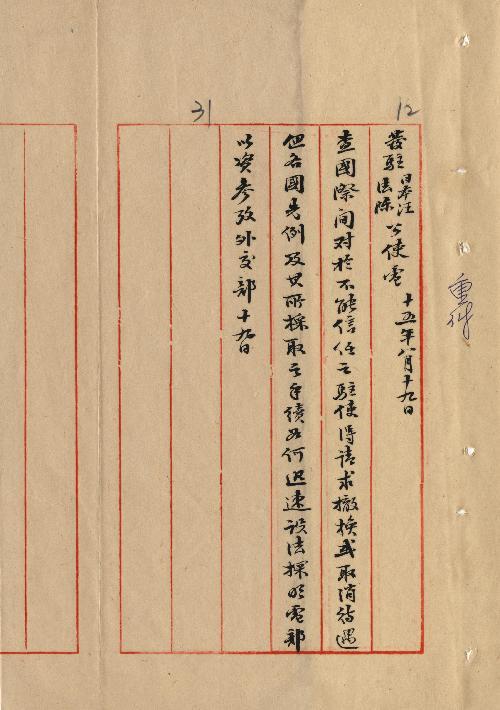 12
發駐日本汪法陳公使電 十五年八月十九日
查國際间对於不能信任之駐使得请求撤换或取消待遇
但各國先例及其所採取之手續如何迅速設法探明電部
以资參攷外交部十九日
31
重件